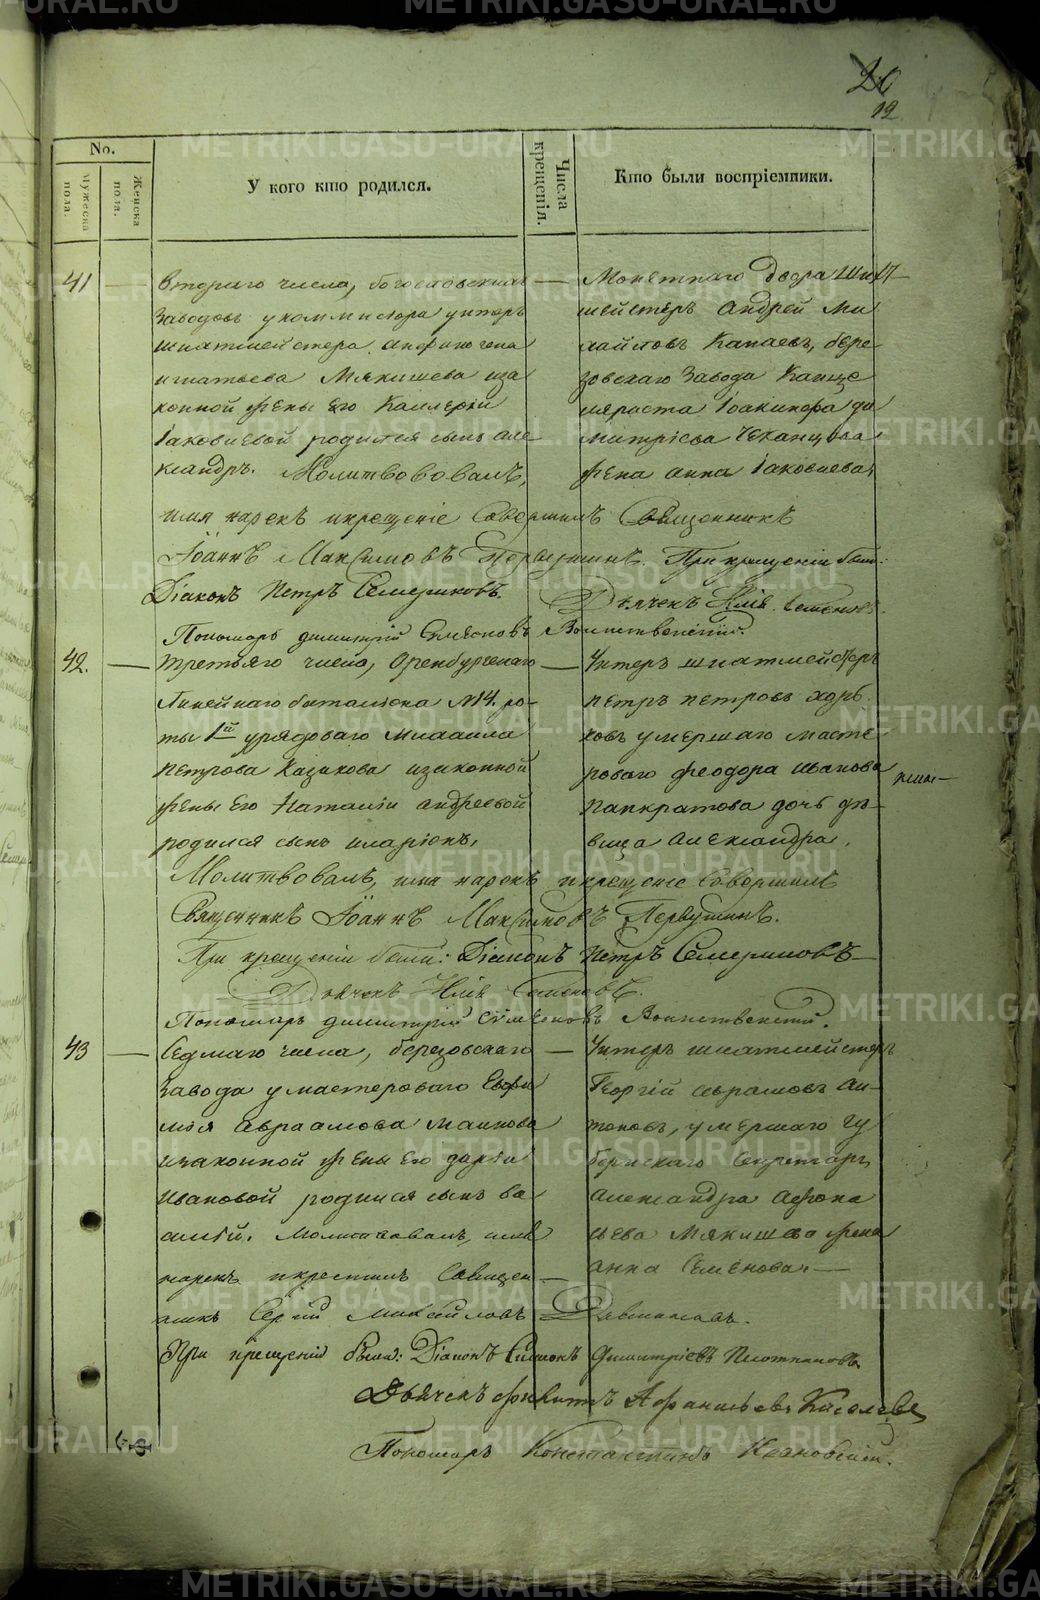 20
12
No.
Мужеска пола.
Женска пола.
У кого кто родился.
Числа крещенія.
Кто были воспріемники.
41
втораго числа, богословскихъ
заводовъ у коммисіора унтеръ
шихтмейстера Анфиногена
Игнатьева Мякишева иза
конной жены его Каллеріи
Іаковлевой родился сынъ Але
ксандръ. Молитвовалъ,
Монетнаго двора Ших
мейстеръ Андрей Ми
хайловъ Капаевъ, бере
зовскаго завода Канце
ляриста Іоакинфа ди
митріева Чеканцова
жена Анна Іаковлева,
имя нарекъ и крещеніе Совершилъ Священникъ
Іоаннъ Максимовъ Первушинъ. При крещеніи были:
Діаконъ Петръ Семериковъ. Дьячекъ Илія Семеновъ.
Пономарь димитрій Симеоновъ Воинственскій.
42.
третьяго числа, Оренбургскаго
Линейнаго баталіона №14. ро-
ты 1й уряднаго Михаила
Петрова Казакова и законной
жены его Наталіи Андреевой
родился сынъ Иларіонъ,
Унтеръ шихтмейстеръ
Петръ Петровъ Хорь
ковъ умершаго масте
роваго Феодора Иванова
Панкратова дочь дѣ-
вица Александра.
Молитвовалъ, имя нарекъ и крещеніе Совершилъ
Священникъ Іоаннъ Максимовъ Первушинъ.
При крещеніи были: Діаконъ Петръ Семериковъ
Дьячекъ Илія Семеновъ.
Пономарь димитрій Симеоновъ Воинственскій.
43
Седмаго числа, березовскаго
завода у мастероваго Евфи
мія Авраамова Маикова
и законной жены его дарьи
Ивановой родился сынъ Ва
силій. Молитвовалъ, имя
нарекъ и крестилъ Священ
никъ Сергій Михайловъ
Унтеръ шихтмейстеръ
Георгій Аврамовъ Ан-
тоновъ, умершаго Гу
бернскаго Секретаря
Александра Афона
сьева Мякишева жена
Анна Семенова.
При крещеніи были: Діаконъ Симеонъ Димитріевъ Плотниковъ
Дьячекъ Филиппъ Афанасьевъ Киселевъ
Пономарь Константинъ
METRIKI.GASO-URAL.RU